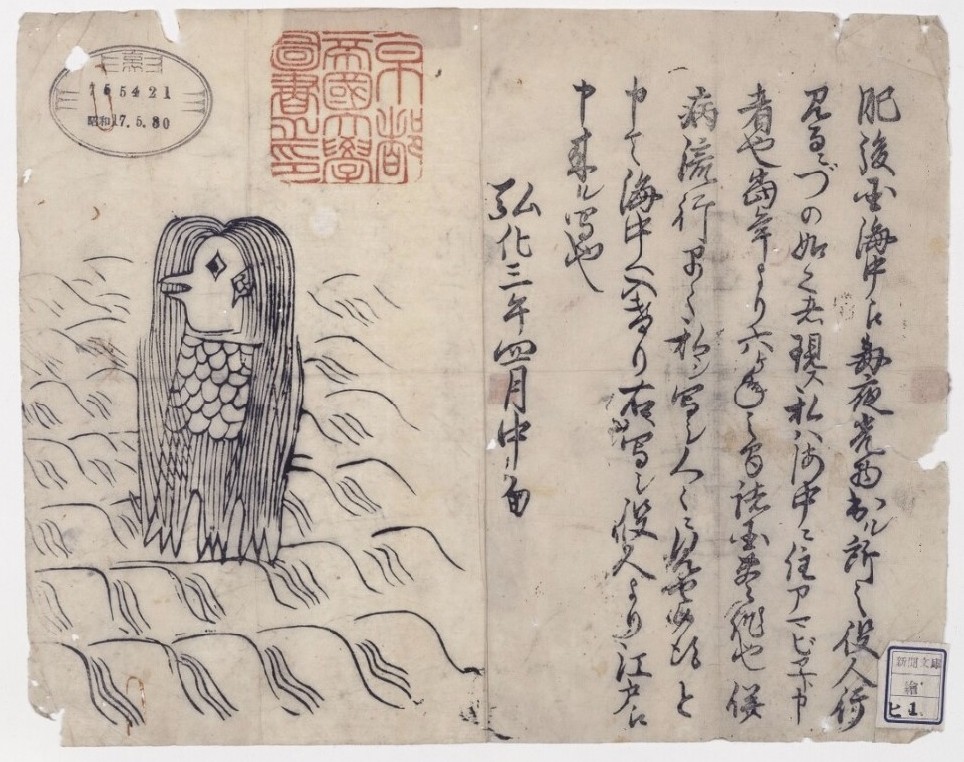 肥後国海中え毎夜光物出ル所之役人行
見るニづの如く者現ス私ハ海中ニ住アマビヱト申
者也當年より六ヶ年之間諸国豊作也併
病流行早々私シ写シ人々ニ見セ候得と
申て海中へ入けり右写シ役人より江戸え
申来ル写也
弘化三年四月中旬
京都
帝國大學
圖書之印
昭和17.5.30
新聞文庫
繪
ヒ 1